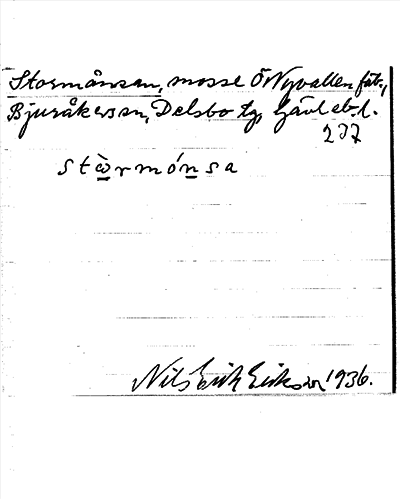 Stormånsan, mosse Ö Nyvallen fäb.,
Bjuråkers sn, Delsbo tg, Gävleb. l.
237
stòrmónsa
Nils Erik Eriksson 1936.